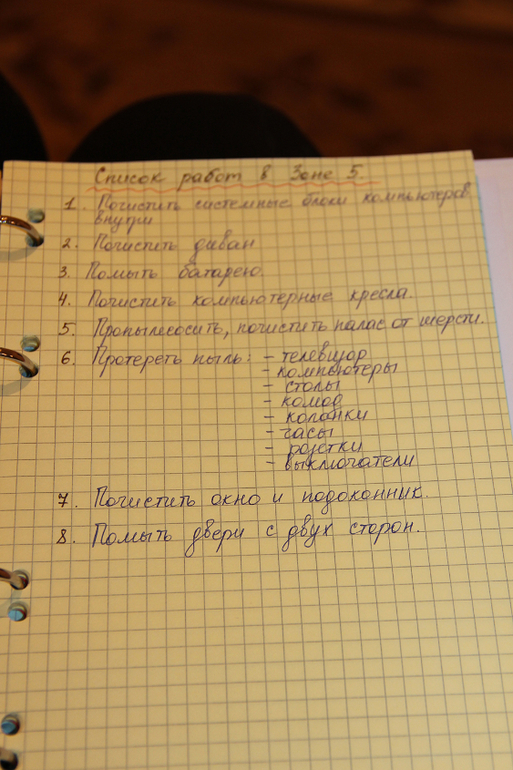 Список работ в Зоне 5.
1. Почистить системные блоки компьютеров
внутри
2. Почистить диван
3. Помыть батарею.
4. Почистить компьютерные кресла.
5. Пропылесосить, почистить палас от шерсти.
6. Протереть пыль: - телевизор
- компьютеры
- столы
- комод
- колонки
- часы
- розетки
- выключатели
7. Почистить окно и подоконник.
8. Помыть двери с двух сторон.